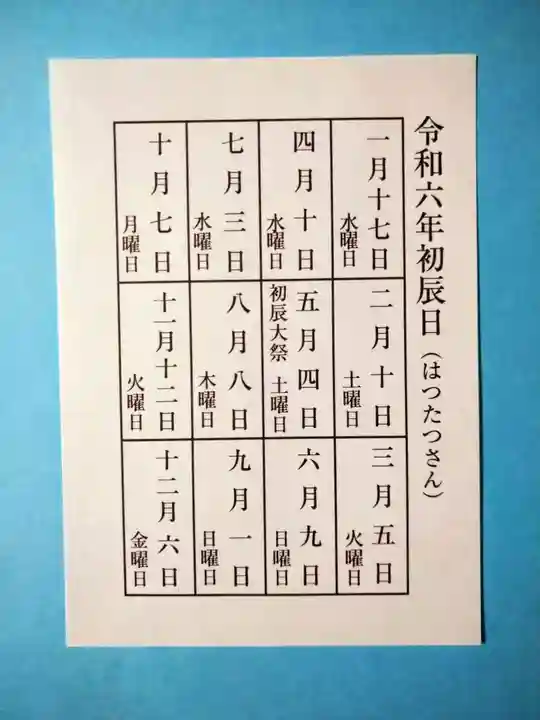 令和六年初辰日(はつたつさん)
一月十七日
水曜日
二月十日
土曜日
三月五日
火曜日
四月十日
水曜日
五月四日
初辰大祭 土曜日
六月九日
日曜日
七月三日
水曜日
八月八日
木曜日
九月一日
日曜日
十月七日
月曜日
十一月十二日
火曜日
十二月六日
金曜日